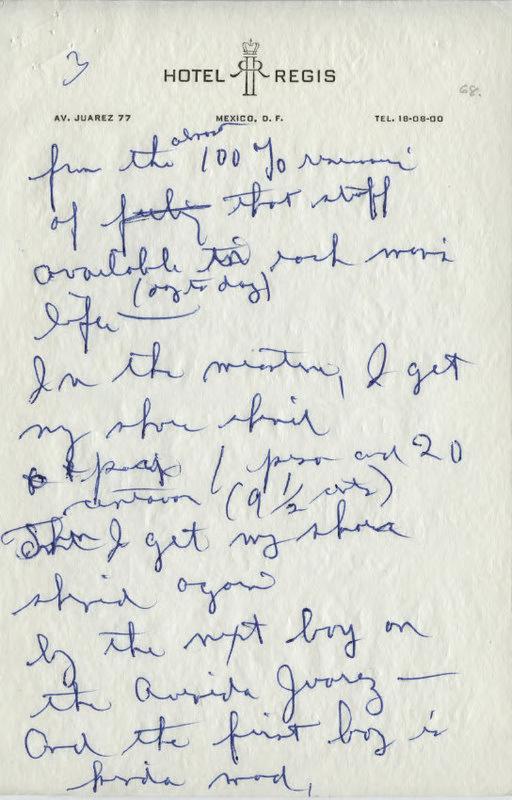 3
HOTEL RR REGIS
68.
AV. JUAREZ 77 MEXICO, D. F. TEL. 18-08-00
almost
from the 100% 
of that stuff
available to each man's
(day to day)
life —
In the meantime, I get
my shoes shined
1 peso and 20
centavos (9 1/2 cents)
Then I get my shoes
shined again
by the next boy on
the Avenida Juarez —
And the first boy is
kinda mad,